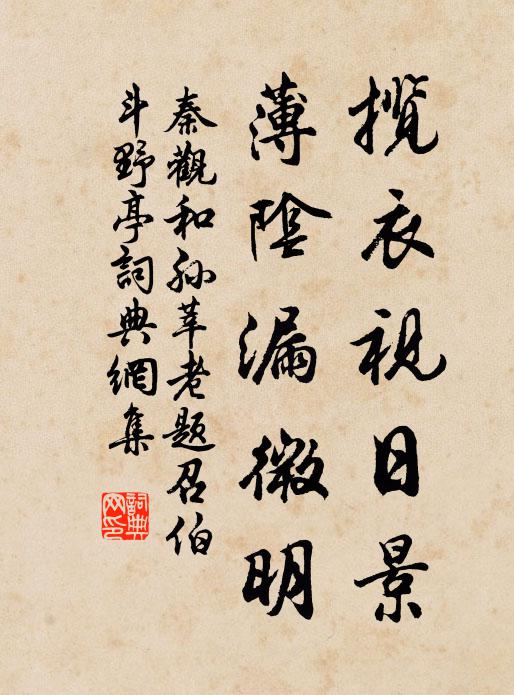 揽衣视日景
薄陰漏微明
秦觀和孙莘老题召伯
斗野亭詞典網集
詞典网印